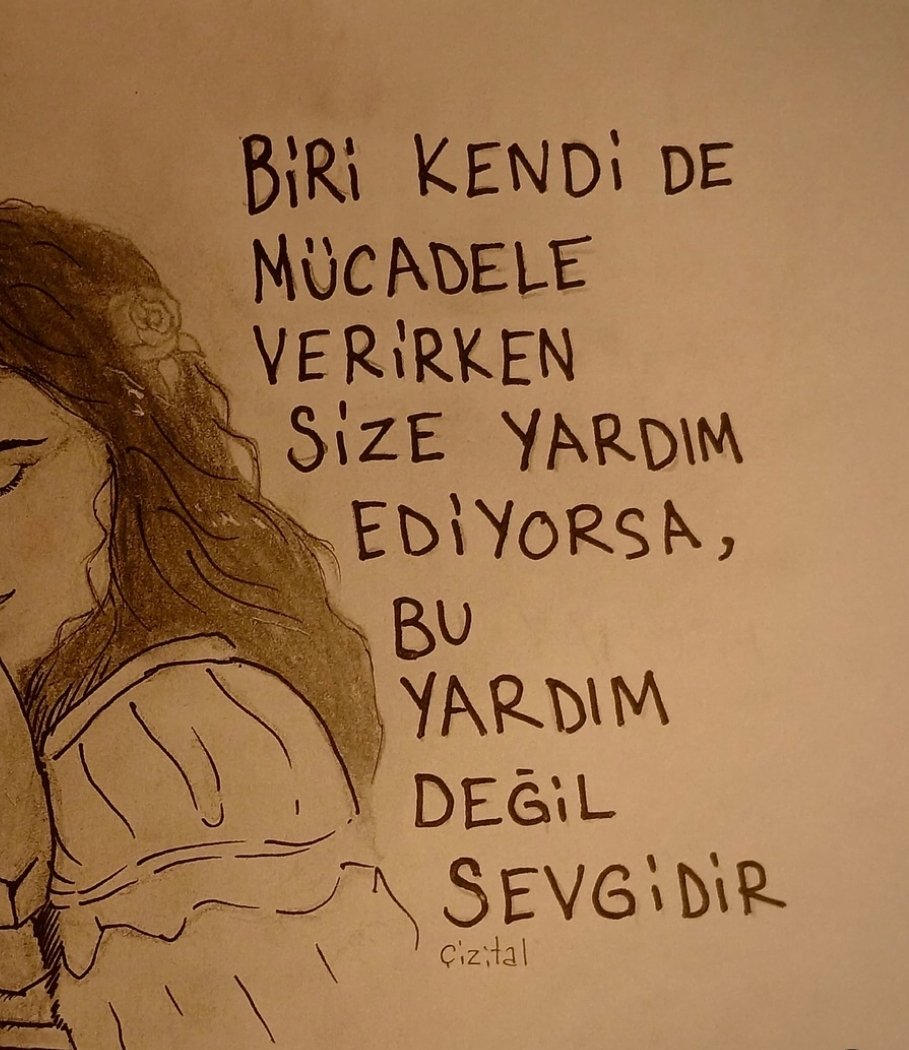 BİRİ KENDİ DE
MÜCADELE
VERİRKEN
SİZE YARDIM
EDİYORSA,
BU
YARDIM
DEĞİL
SEVGİDİR
Çizital